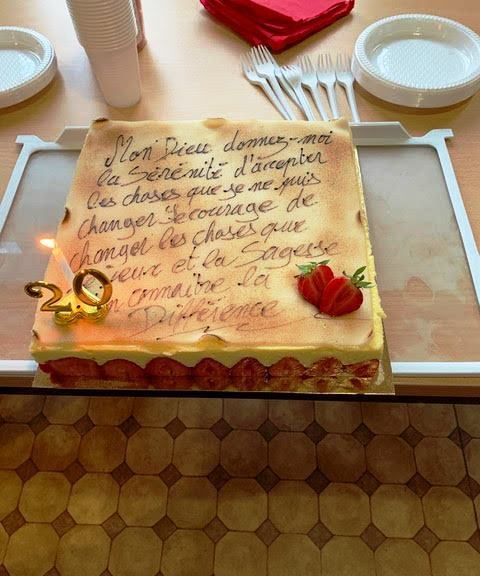 Mon Dieu donnez-moi
la Sérénité d'accepter
les choses que je ne puis
changer le courage de
changer les choses que
ieux et la Sagesse
n connaître la
Différence
20